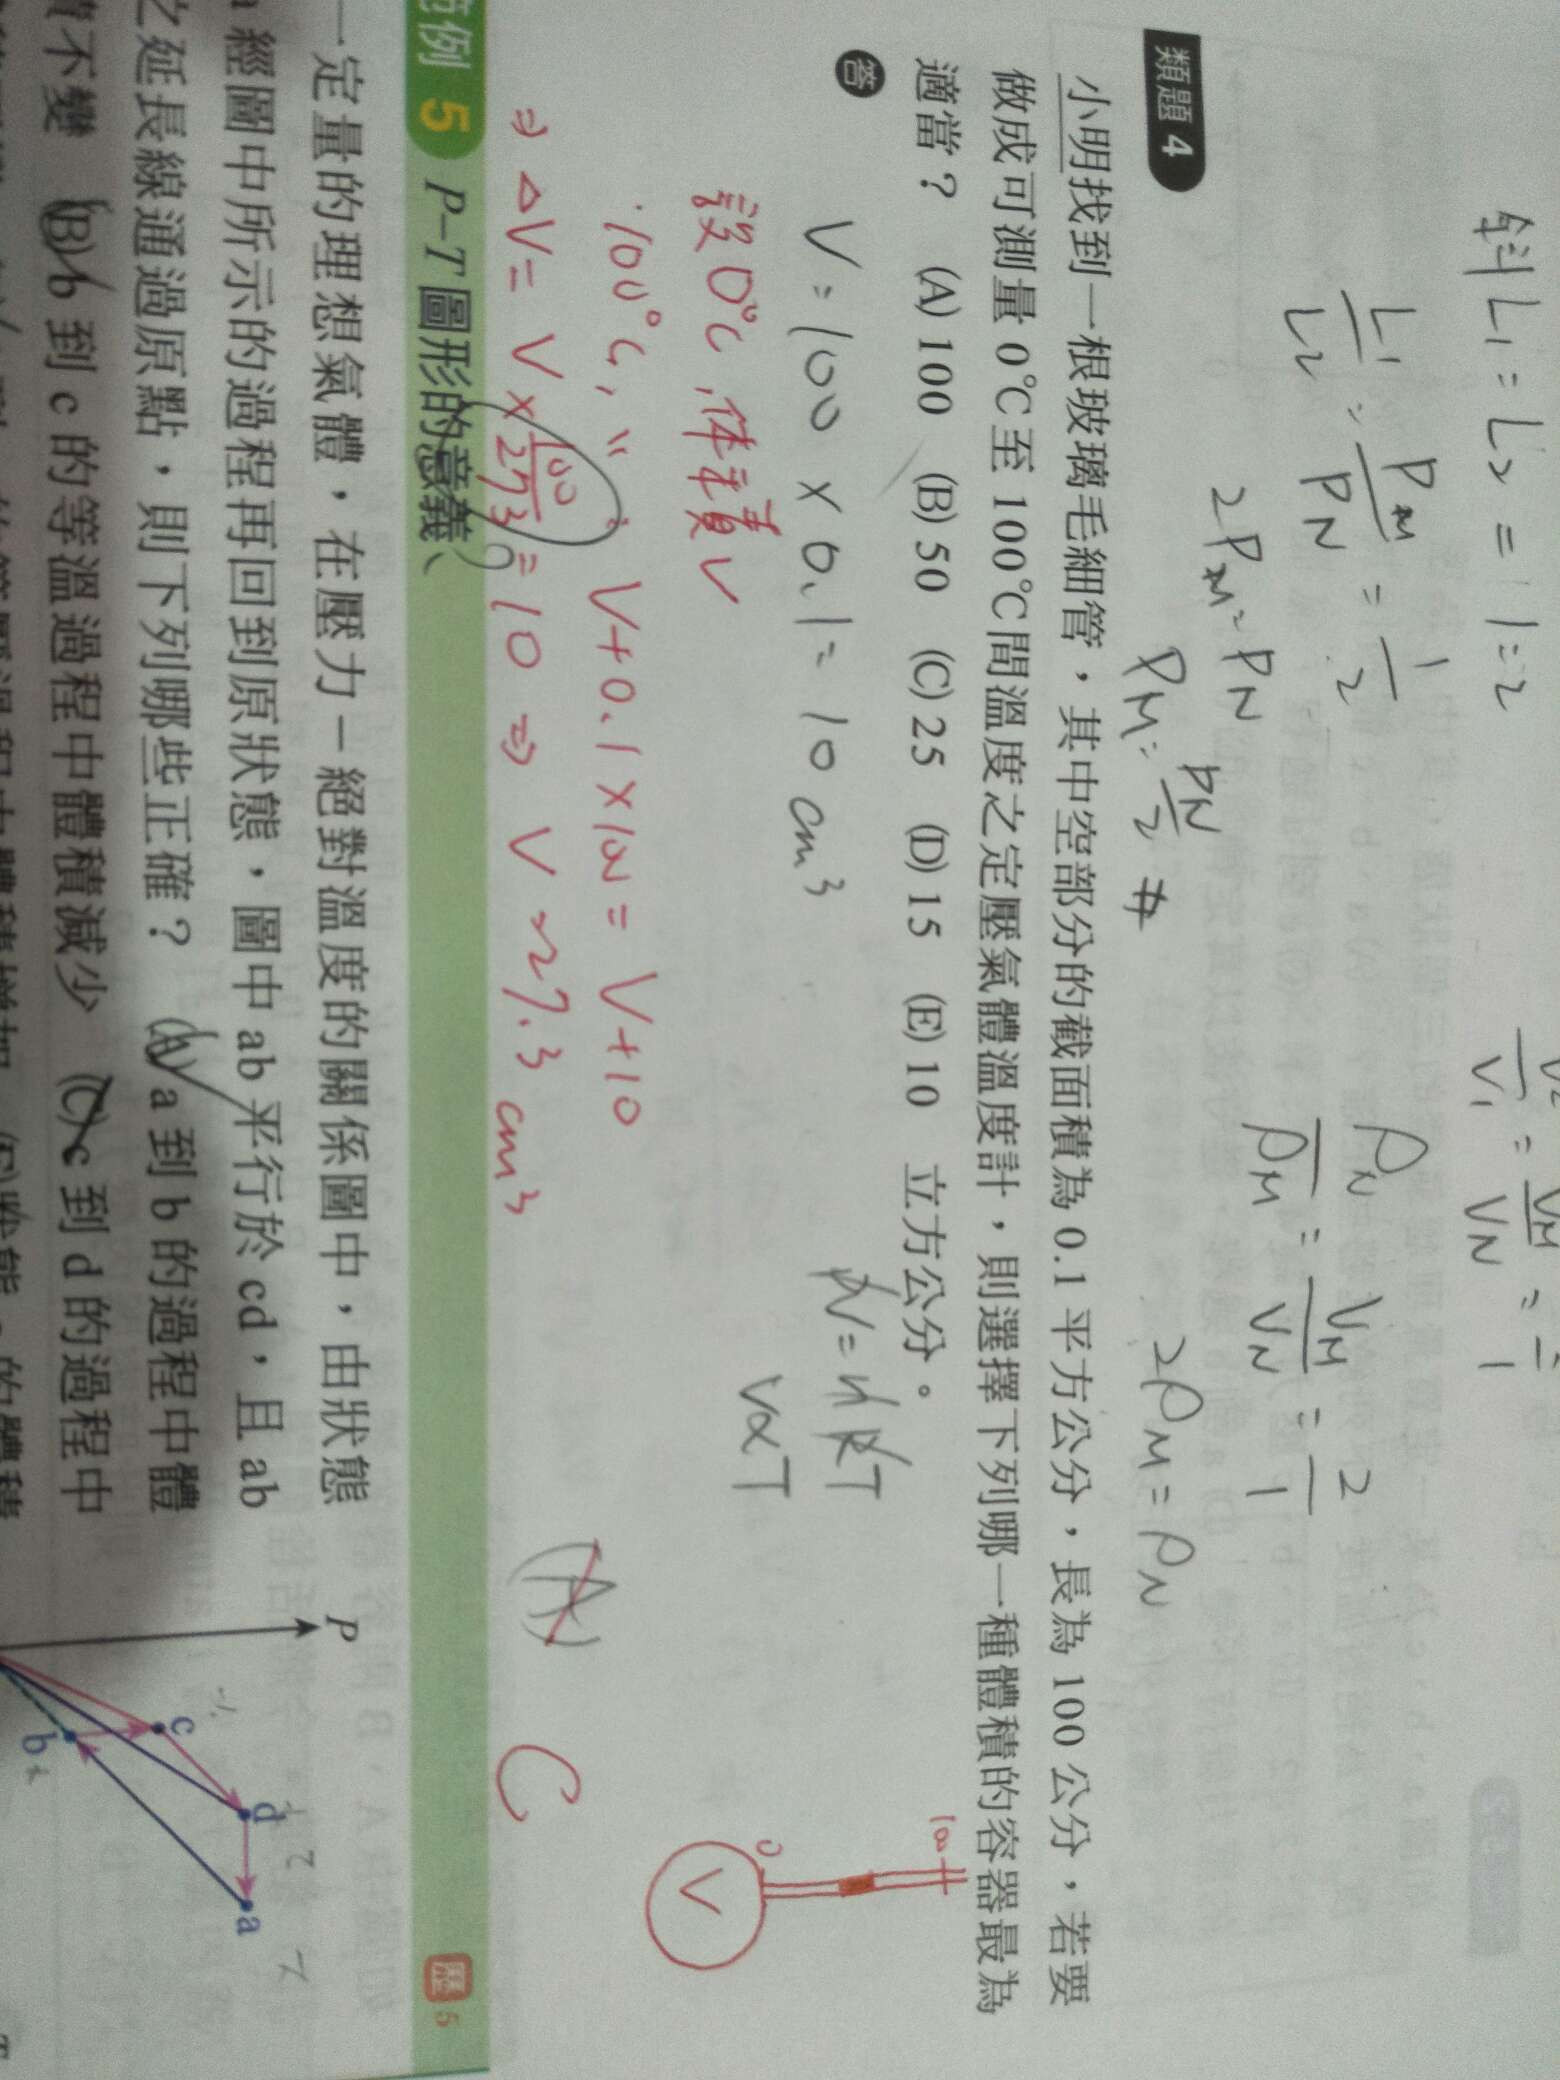 斜L₁=L₂=1:2
L₁/L₂=P_M/P_N=1/2
2P_M=P_N
P_M=P_N/2 #
V₂/V₁=V_M/V_N=
ρ_N/ρ_M=V_M/V_N=2/1
2ρ_M=ρ_N
類題 4
小明找到一根玻璃毛細管，其中空部分的截面積為 0.1 平方公分，長為 100 公分，若要
做成可測量 0℃至 100℃間溫度之定壓氣體溫度計，則選擇下列哪一種體積的容器最為
適當？ (A) 100 (B) 50 (C) 25 (D) 15 (E) 10 立方公分。
答
V=100×0.1=10cm³
PV=nRT
V∝T
設0℃,体積V
100℃,〃 V+0.1×100=V+10
⇒ΔV=V×100/273=10⇒V~27.3cm³
(A)
C
V
0
100
範例 5 P-T 圖形的意義
歷 5
一定量的理想氣體，在壓力－絕對溫度的關係圖中，由狀態
a 經圖中所示的過程再回到原狀態，圖中 ab 平行於 cd，且 ab
之延長線通過原點，則下列哪些正確？ (A) a 到 b 的過程中體
積不變 (B) b 到 c 的等溫過程中體積減少 (C) c 到 d 的過程中
P
c
d
b
a